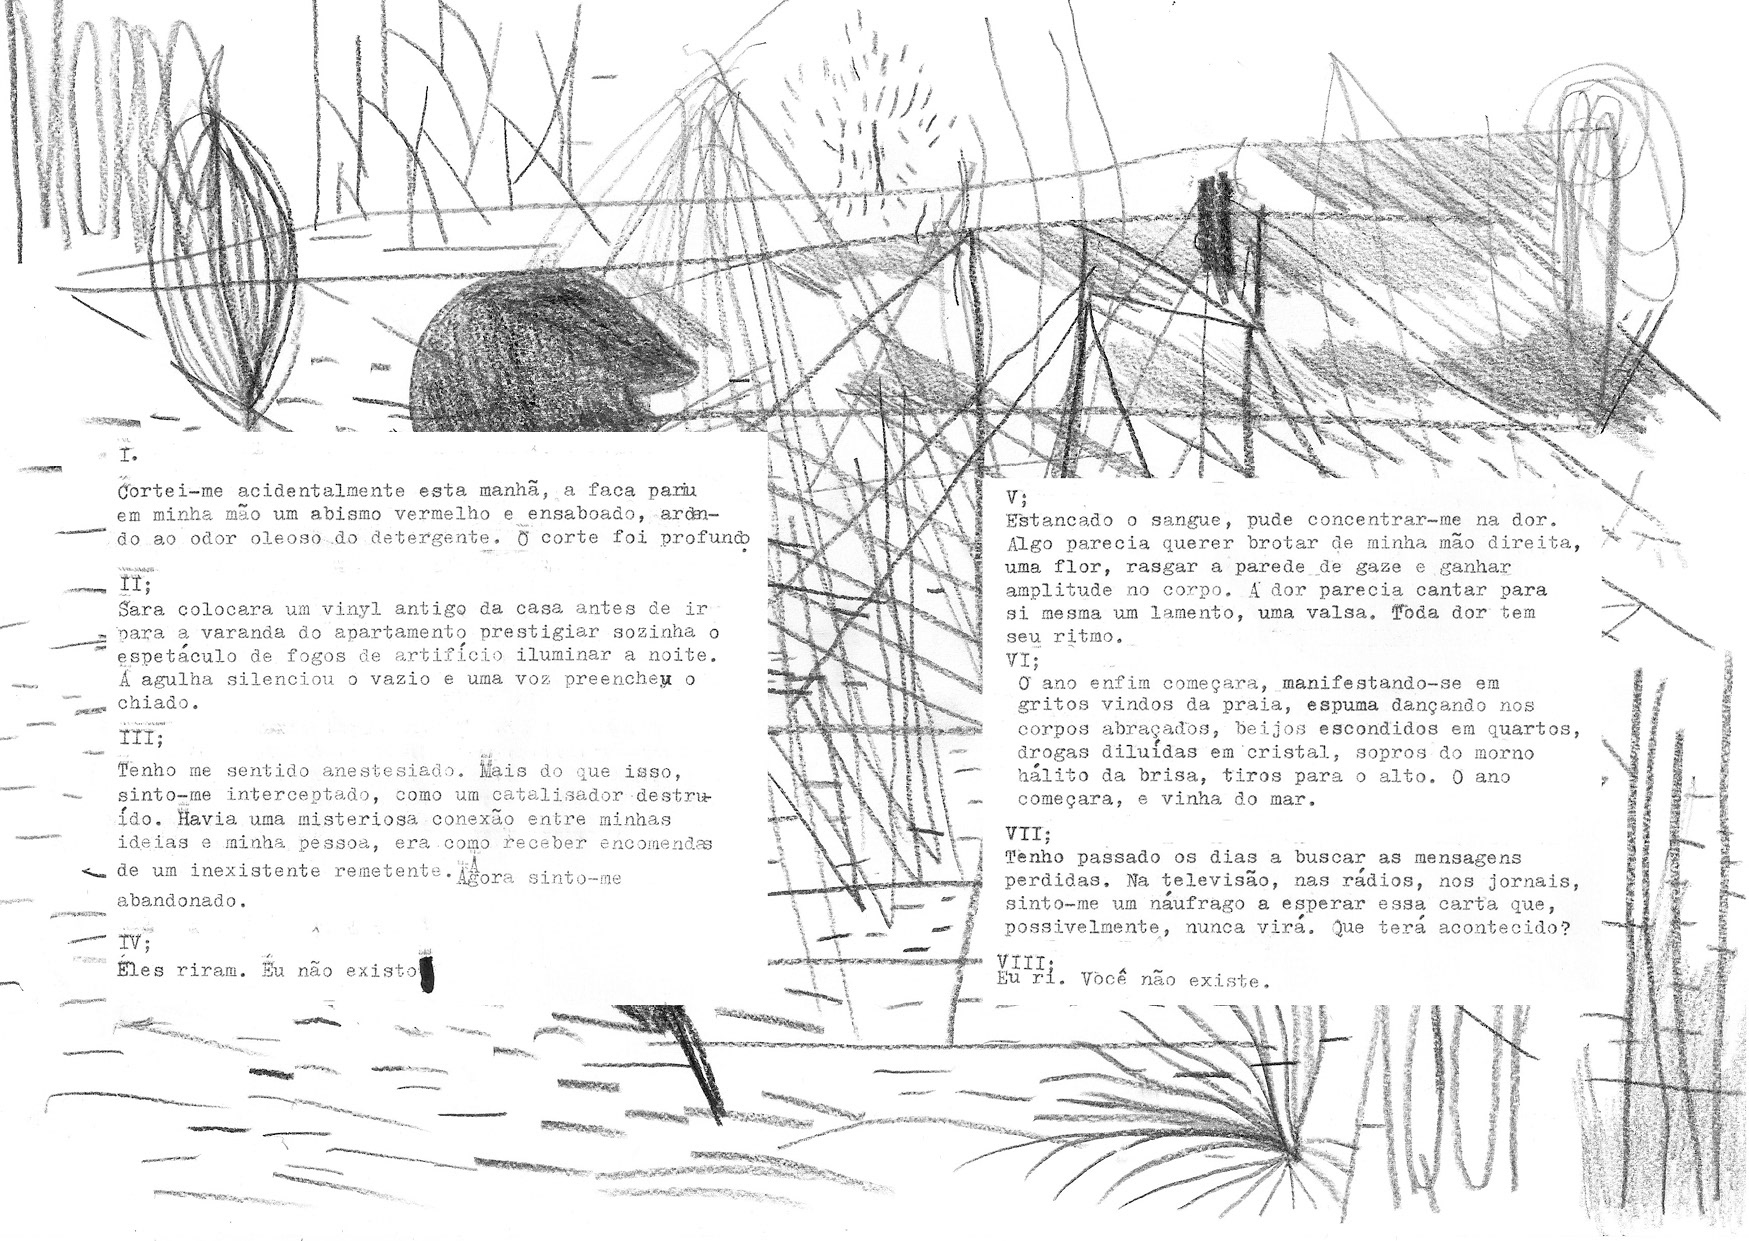 I.
Cortei-me acidentalmente esta manhã, a faca pariu
em minha mão um abismo vermelho e ensaboado, arden-
do ao odor oleoso do detergente. O corte foi profundo
II;
Sara colocara um vinyl antigo da casa antes de ir
para a varanda do apartamento prestigiar sozinha o
espetáculo de fogos de artifício iluminar a noite.
A agulha silenciou o vazio e uma voz preencheu o
chiado.
III;
Tenho me sentido anestesiado. Mais do que isso,
sinto-me interceptado, como um catalisador destru-
ído. Havia uma misteriosa conexão entre minhas
ideias e minha pessoa, era como receber encomendas
de um inexistente remetente. Agora sinto-me
abandonado.
IV;
Eles riram. Eu não existo
V;
Estancado o sangue, pude concentrar-me na dor.
Algo parecia querer brotar de minha mão direita,
uma flor, rasgar a parede de gaze e ganhar
amplitude no corpo. A dor parecia cantar para
si mesma um lamento, uma valsa. Toda dor tem
seu ritmo.
VI;
O ano enfim começara, manifestando-se em
gritos vindos da praia, espuma dançando nos
corpos abraçados, beijos escondidos em quartos,
drogas diluídas em cristal, sopros do morno
hálito da brisa, tiros para o alto. O ano
começara, e vinha do mar.
VII;
Tenho passado os dias a buscar as mensagens
perdidas. Na televisão, nas rádios, nos jornais,
sinto-me um náufrago a esperar essa carta que,
possivelmente, nunca virá. Que terá acontecido?
VIII;
Eu ri. Você não existe.
AQUI